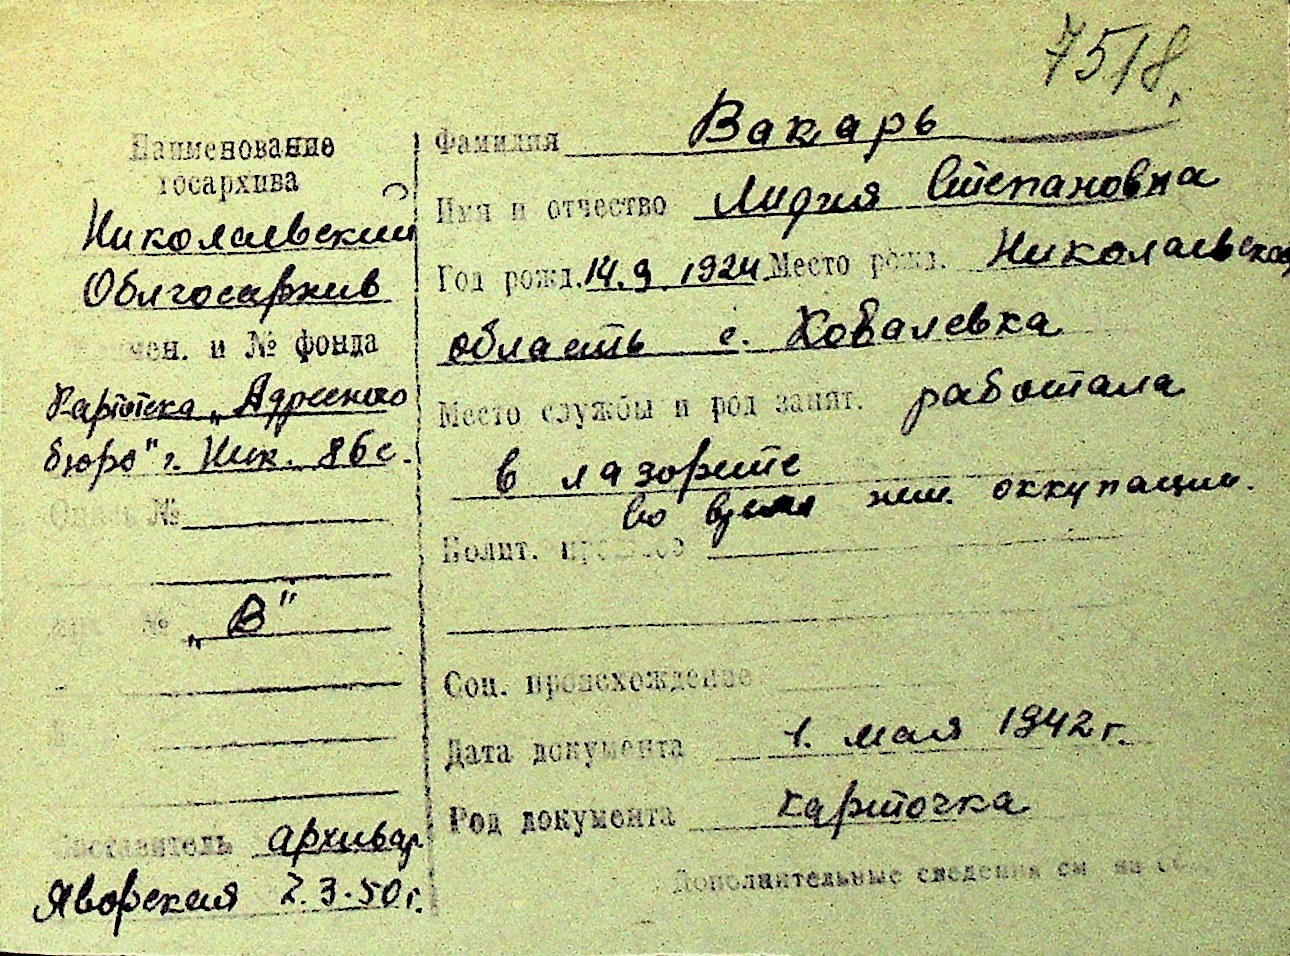 7518.
Наименование
госархива
Николаевский
Облгосархив
и № фонда
Картотека „Адресного
бюро" г. Ник. 86 с.
Опись №
№ „В"
Составитель архивар.
Яворская 2.3.50 г.
Фамилия Вакарь
Имя и отчество Лидия Степановна
Год рожд. 14.9.1924 Место рожд. Николаевская
область с. Ковалевка
Место службы и род занят. работала
в лазорите
во время нем. оккупации.
Полит. прошлое
Соц. происхождение
Дата документа 1. мая 1942 г.
Род документа карточка
Дополнительные сведения см на об.